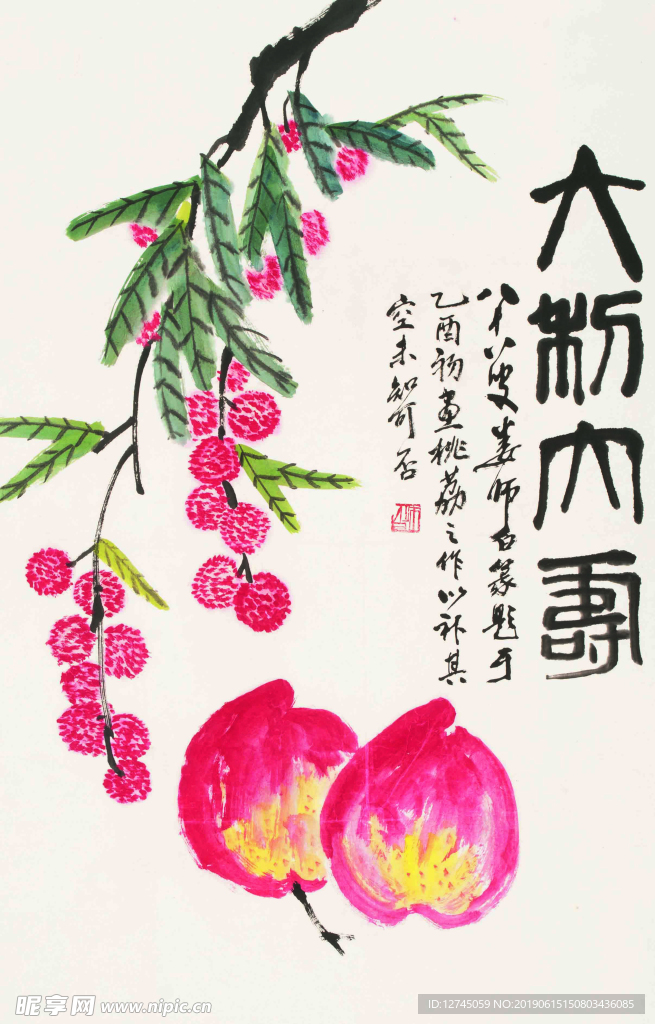 大利大寿
八十八叟娄师白篆题于
乙酉初画桃荔之作以补其
空未知可否
昵享网 www.nipic.cn
ID:12745059 NO:20190615150803436085